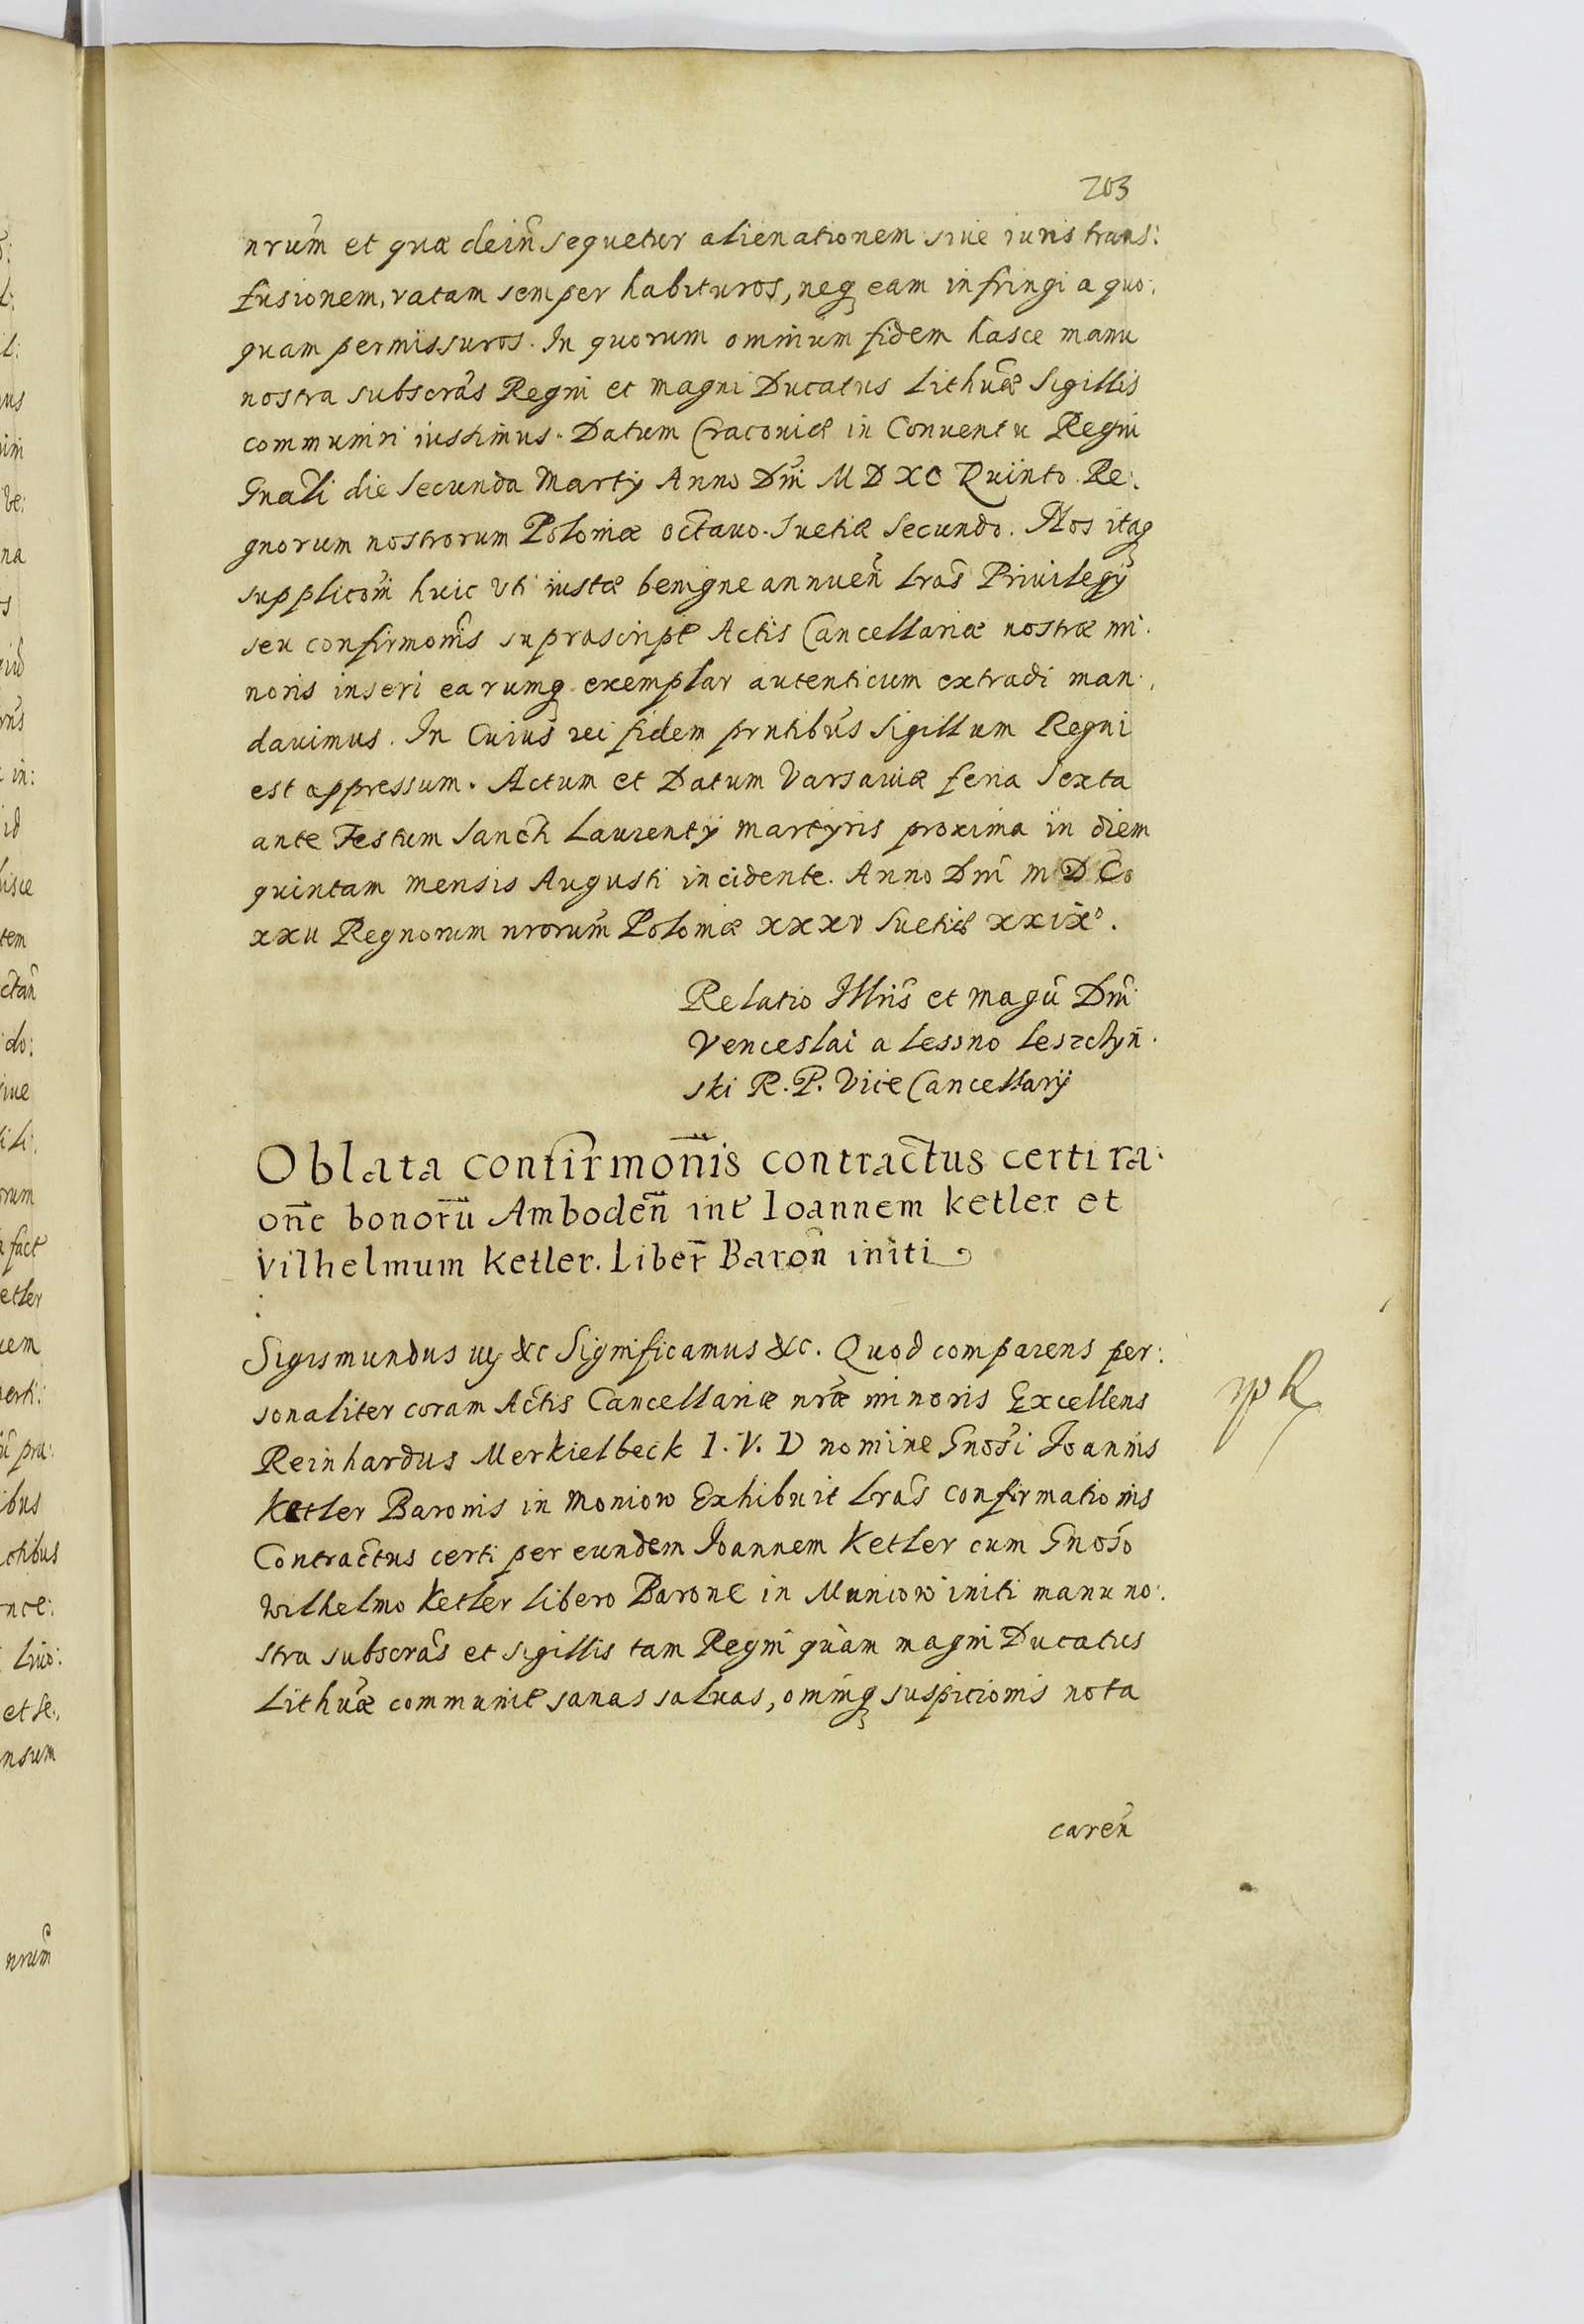 203
nrum̃ et quæ dein̄ sequetur alienationem siue iuris trans:
fusionem, ratam semper habituros, neq₃ eam infringi a quo:
quam permissuros. In quorum omnium fidem hasce manu
nostra subscrãs Regni et magni Ducatus Lithuæ̃ Sigillis
communiri iussimus. Datum Cracouiæ in Conuentu Regni
Gnãli die Secunda Martÿ Anno Dni̅ MDXC Quinto. Re:
gnorum nostrorum Poloniæ octauo. Suetiæ Secundo. Nos itaq₃
supplicõni huic vti iustæ benigne annuen̄ Lrãs Priuilegÿ
seu confirmonĩs suprascript̃ Actis Cancellariæ nostræ mi:
noris inseri earumq₃ exemplar autenticum extradi man:
dauimus. In Cuius rei fidem prñtibus Sigillum Regni
est appressum. Actum et Datum Varsauiæ feria Sexta
ante Festum Sancti Laurentÿ Martyris proxima in diem
quintam mensis Augusti incidente. Anno Dni̅ MDC
xxii Regnorum nrorum̃ Poloniæ xxxv Suetiæ xxix°.
Relatio Illris̃ et magci̅ Dni̅
Venceslai a Lessno Leszchyń:
ski R. P. Vice Cancellarÿ
Oblata confirmonĩs contractus certi ra:
one̅ bonorũ Amboden̄ int̃ Ioannem Ketler et
Vilhelmum Ketler. Liber̄ Baron̄ initi
Sigismundus iij &c Significamus &c. Quod comparens per:
sonaliter coram Actis Cancellariæ nræ̃ minoris Excellens
Reinhardus Merkielbeck I. V. D nomine Gnosĩ Joannis
Ketler Baronis in Moniow Exhibuit Lrãs confirmationis
Contractus certi per eundem Joannem Ketler cum Gnosõ
Wilhelmo Ketler Libero Barone in Muniow initi manu no:
stra subscrãs et sigillis tam Regni quàm magni Ducatus
Lithuæ̃ communit̃ sanas saluas, omniq₃ suspicionis nota
caren̄